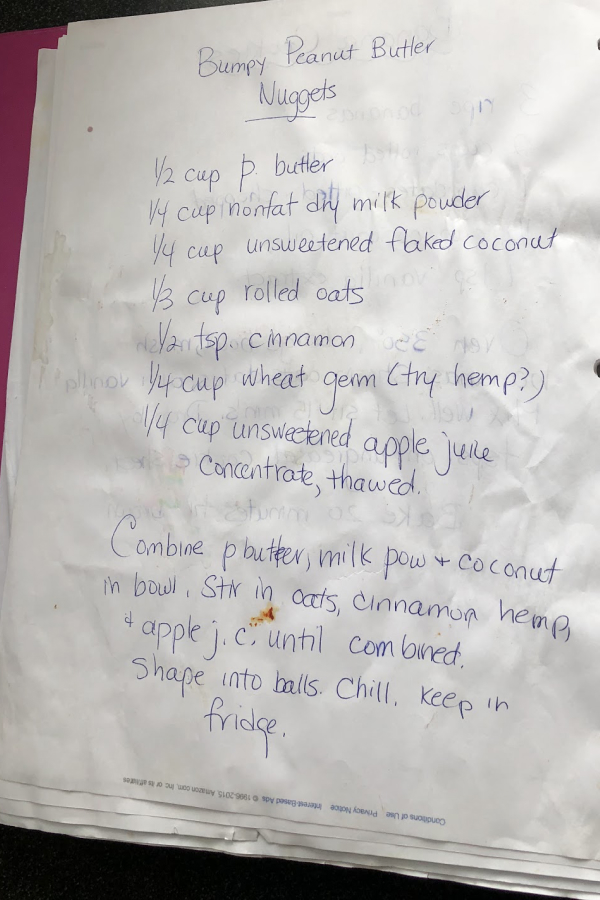 Bumpy Peanut Butter
Nuggets
1/2 cup p. butter
1/4 cup nonfat dry milk powder
1/4 cup unsweetened flaked coconut
1/3 cup rolled oats
1/2 tsp. cinnamon
1/4 cup wheat germ (try hemp?)
1/4 cup unsweetened apple juice
concentrate, thawed.
Combine p butter, milk pow + coconut
in bowl. Stir in oats, cinnamon hemp,
+ apple j. c. until combined.
Shape into balls. Chill. Keep in
fridge.
Conditions of Use Privacy Notice Interest-Based Ads © 1996-2015, Amazon.com, Inc. or its affiliates